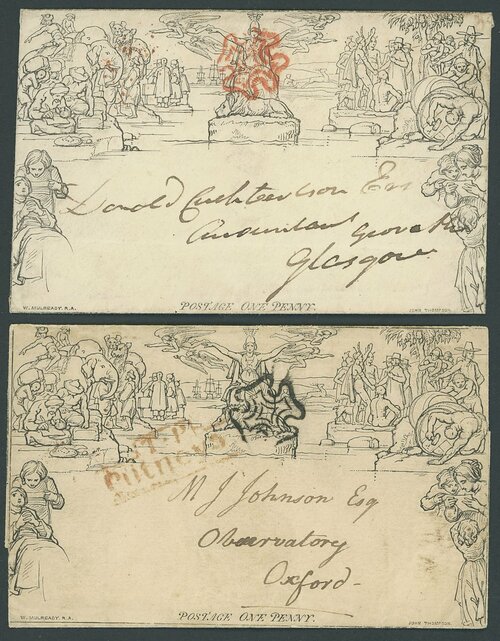 Donald Cuthbertson Esq
Accountant
Glasgow
W. MULREADY. R.A.
POSTAGE ONE PENNY.
JOHN THOMPSON
Putney
M J Johnson Esq
Observatory
Oxford
W. MULREADY. R.A.
POSTAGE ONE PENNY.
JOHN THOMPSON